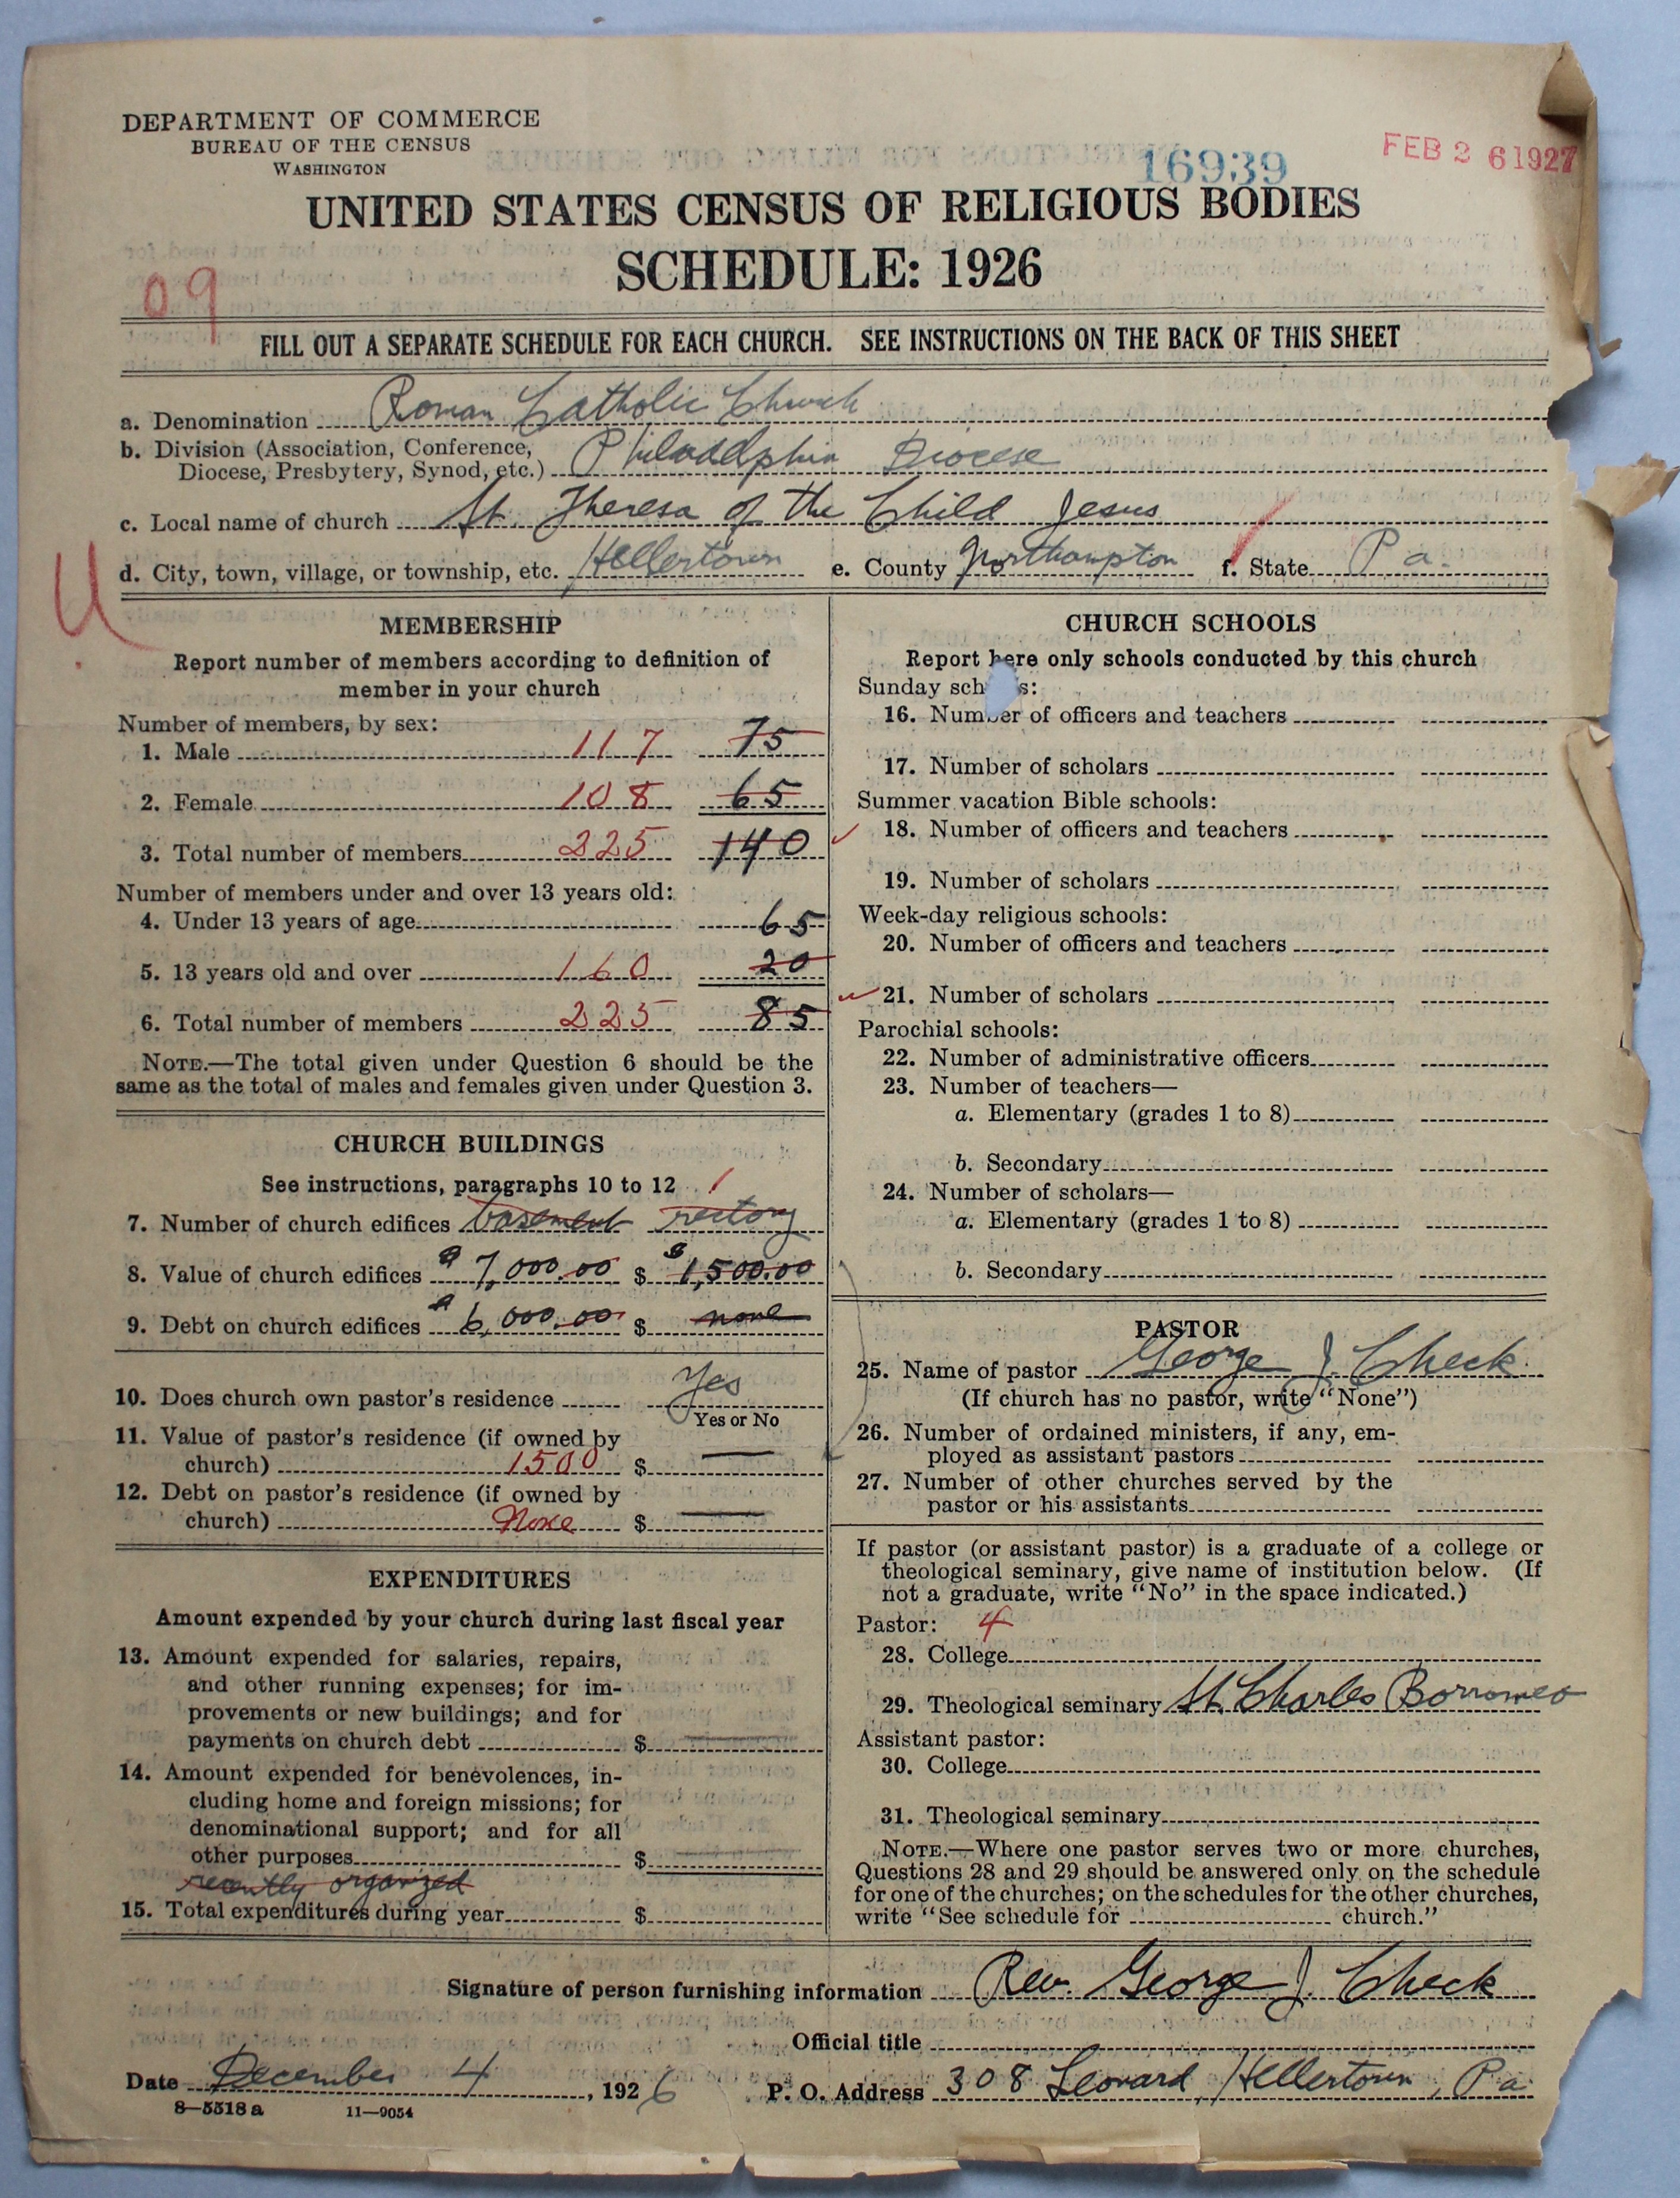 DEPARTMENT OF COMMERCE
BUREAU OF THE CENSUS
WASHINGTON
16939
FEB 2 6 1927
UNITED STATES CENSUS OF RELIGIOUS BODIES
SCHEDULE: 1926
09
FILL OUT A SEPARATE SCHEDULE FOR EACH CHURCH. SEE INSTRUCTIONS ON THE BACK OF THIS SHEET
a. Denomination Roman Catholic Church
b. Division (Association, Conference,
Diocese, Presbytery, Synod, etc.) Philadelphia Diocese
c. Local name of church St. Theresa of the Child Jesus
d. City, town, village, or township, etc. Hellertown e. County Northampton f. State Pa.
U
MEMBERSHIP
Report number of members according to definition of
member in your church
Number of members, by sex:
1. Male 117 75
2. Female 108 65
3. Total number of members 225 140
Number of members under and over 13 years old:
4. Under 13 years of age 65
5. 13 years old and over 160 20
6. Total number of members 225 85
NOTE.—The total given under Question 6 should be the
same as the total of males and females given under Question 3.
CHURCH BUILDINGS
See instructions, paragraphs 10 to 12 1
7. Number of church edifices basement rectory
8. Value of church edifices $ 7,000.00 $ $ 1,500.00
9. Debt on church edifices $ 6,000.00 $ none
10. Does church own pastor's residence Yes
Yes or No
11. Value of pastor's residence (if owned by
church) 1500 $
12. Debt on pastor's residence (if owned by
church) None $
EXPENDITURES
Amount expended by your church during last fiscal year
13. Amount expended for salaries, repairs,
and other running expenses; for im-
provements or new buildings; and for
payments on church debt $
14. Amount expended for benevolences, in-
cluding home and foreign missions; for
denominational support; and for all
other purposes $
recently organized
15. Total expenditures during year $
CHURCH SCHOOLS
Report here only schools conducted by this church
Sunday sch s:
16. Number of officers and teachers
17. Number of scholars
Summer vacation Bible schools:
18. Number of officers and teachers
19. Number of scholars
Week-day religious schools:
20. Number of officers and teachers
21. Number of scholars
Parochial schools:
22. Number of administrative officers
23. Number of teachers—
a. Elementary (grades 1 to 8)
b. Secondary
24. Number of scholars—
a. Elementary (grades 1 to 8)
b. Secondary
PASTOR
25. Name of pastor George J. Check
(If church has no pastor, write "None")
26. Number of ordained ministers, if any, em-
ployed as assistant pastors
27. Number of other churches served by the
pastor or his assistants
If pastor (or assistant pastor) is a graduate of a college or
theological seminary, give name of institution below. (If
not a graduate, write "No" in the space indicated.)
Pastor: 4
28. College
29. Theological seminary St. Charles Borromeo
Assistant pastor:
30. College
31. Theological seminary
NOTE.—Where one pastor serves two or more churches,
Questions 28 and 29 should be answered only on the schedule
for one of the churches; on the schedules for the other churches,
write "See schedule for church."
Signature of person furnishing information Rev. George J. Check
Official title
Date December 4, 1926 P. O. Address 308 Leonard, Hellertown, Pa.
8—5518 a 11—9054